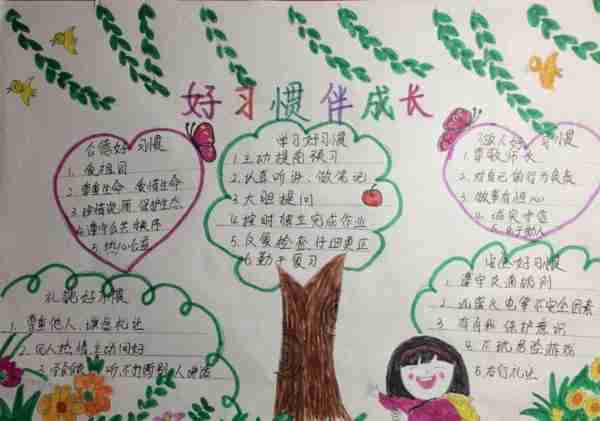 好习惯伴成长
公德好习惯
1. 爱祖国
2. 尊重生命、爱惜生命
3. 珍惜资源、保护生态
4. 遵守公共秩序
5. 热心公益
学习好习惯
1. 主动提前预习
2. 认真听讲、做笔记
3. 大胆提问
4. 按时独立完成作业
5. 反复检查仔细更正
6. 勤于复习
好习惯
1. 尊敬师长
2. 对自己的行为负责
3. 做事有恒心
4. 诚实守信
5. 助人
礼貌好习惯
1. 尊重他人、谦恭礼让
2. 见人热情主动问好
3. 听 不打断别人说话
安全好习惯
1. 遵守交通规则
2. 远离火电等不安全因素
3. 有自我保护意识
4. 不玩危险游戏
5. 右行礼让